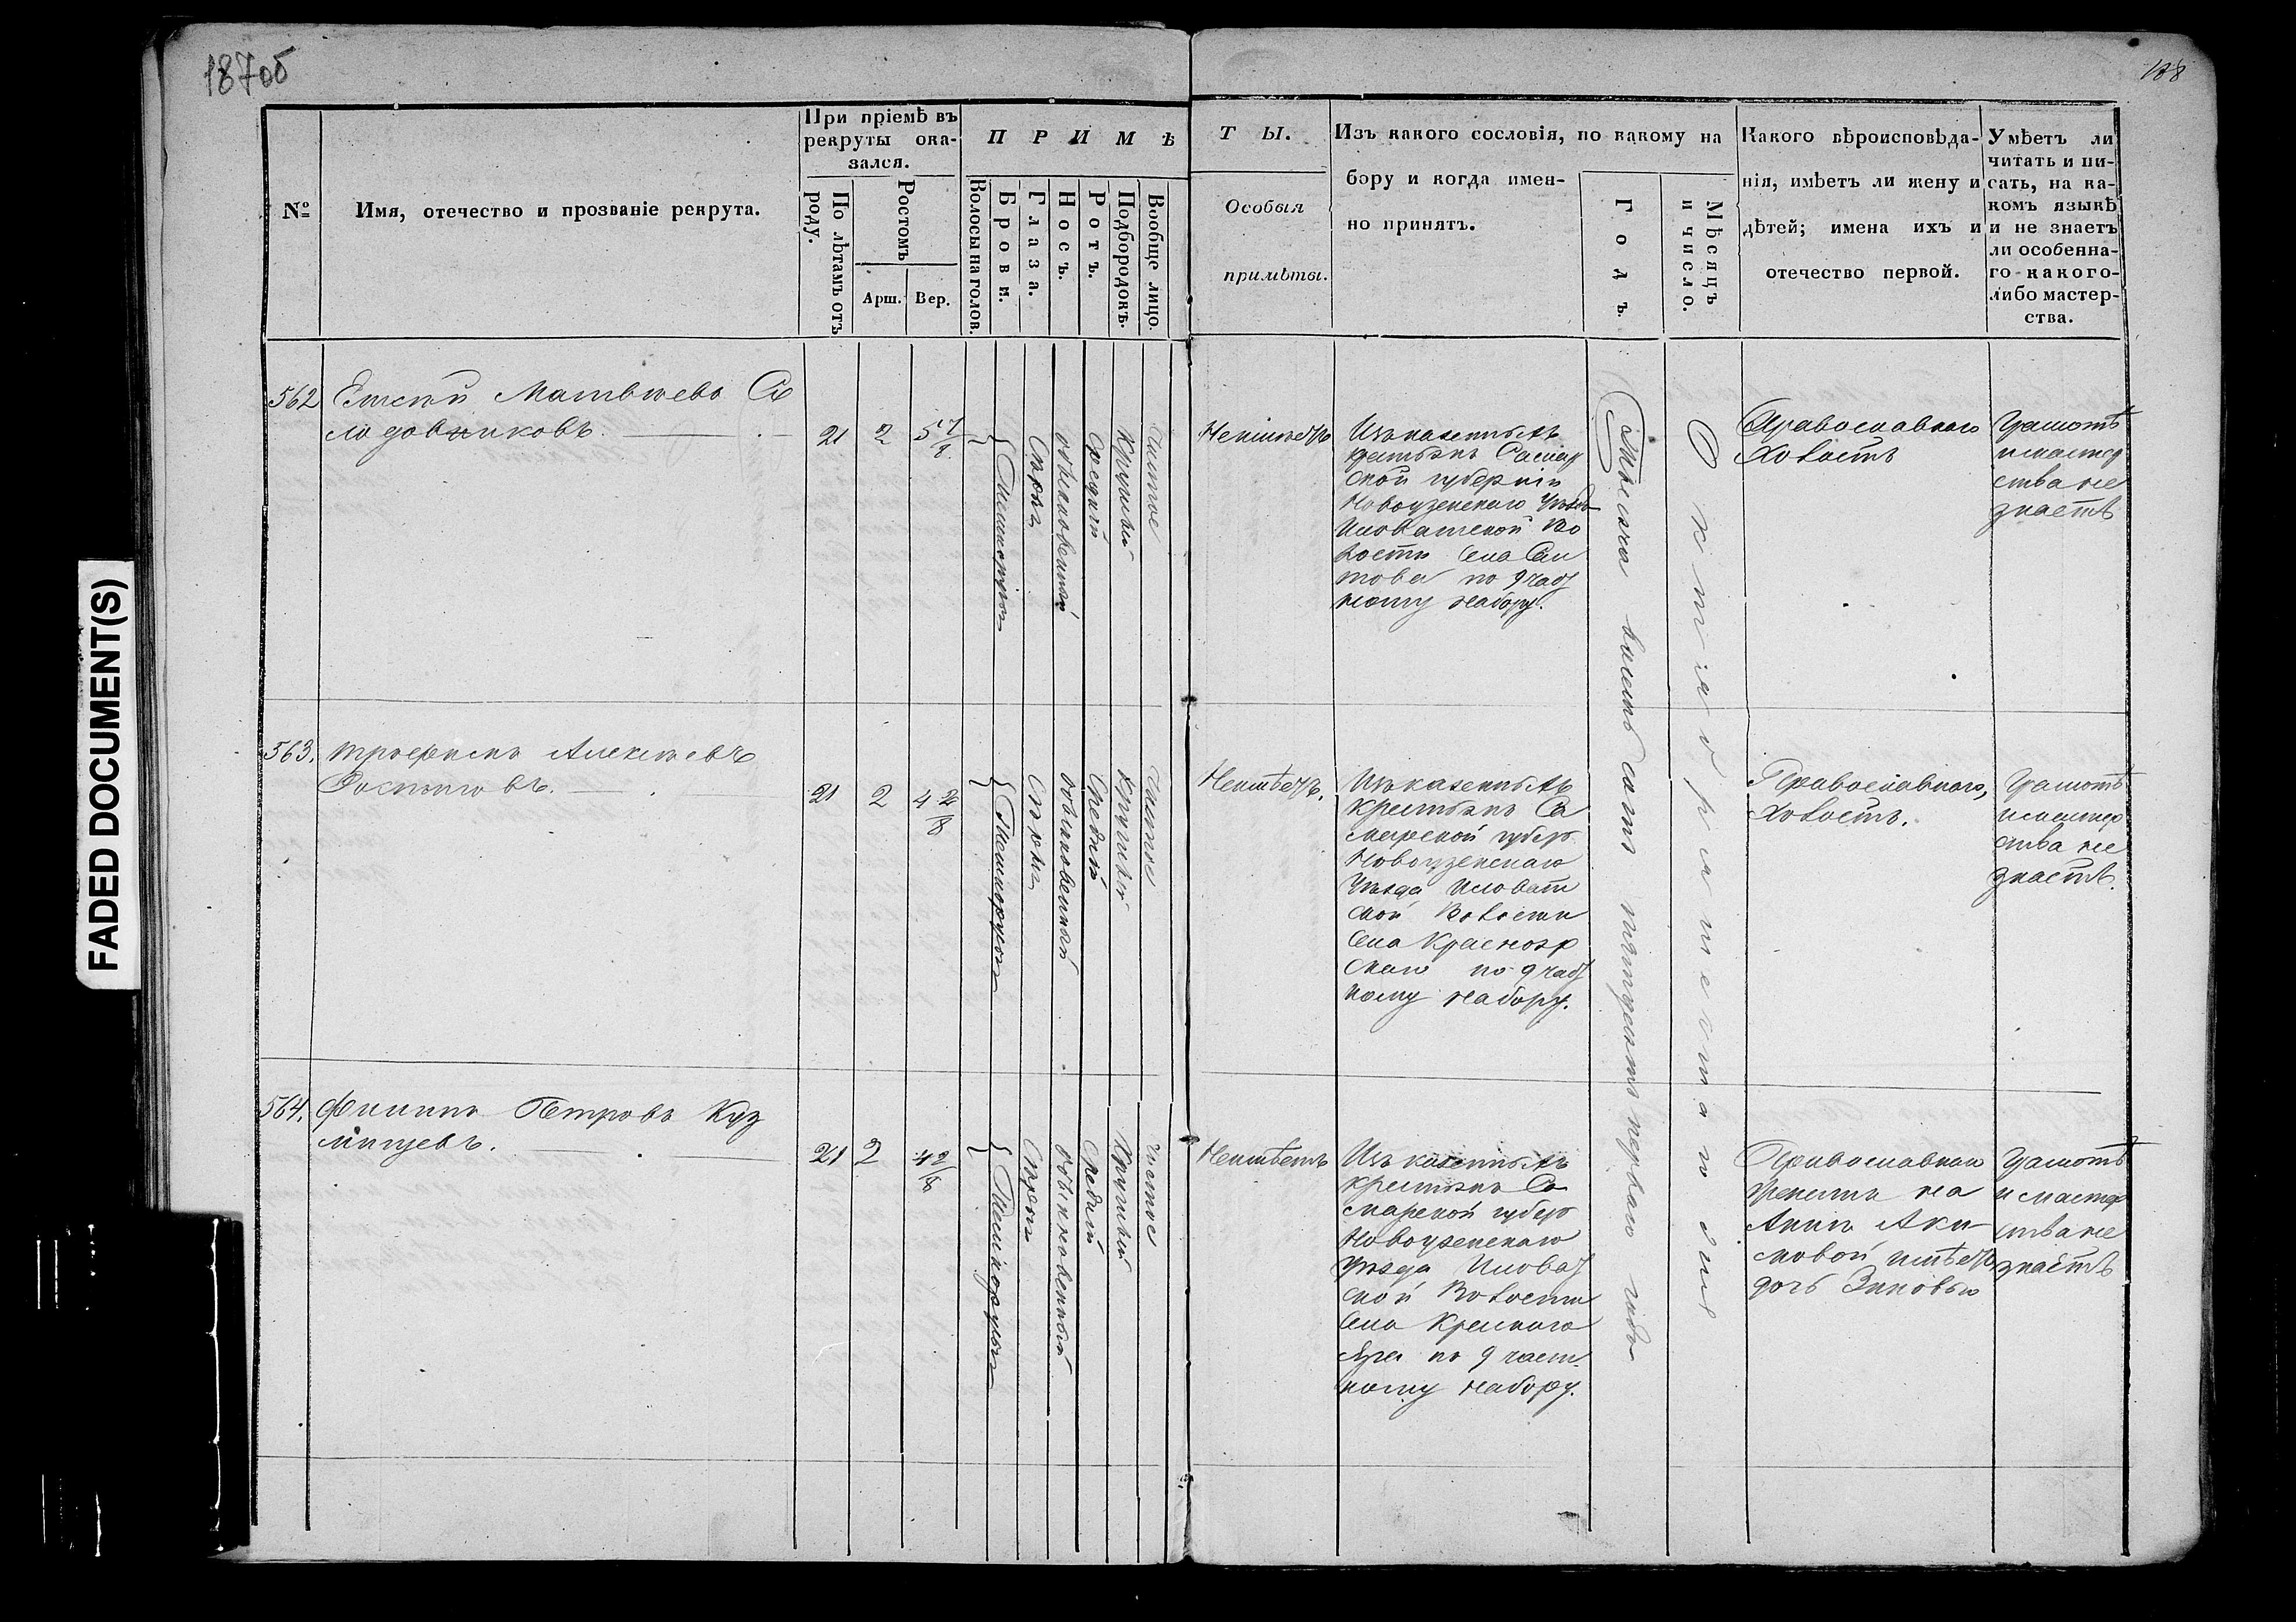 187об
188
№
Имя, отечество и прозваніе рекрута.
При пріемѣ въ
рекруты ока-
зался.
По лѣтамъ отъ
роду.
Ростомъ
Арш.
Вер.
П Р И М Ѣ
Волосы на голов.
Брови.
Глаза.
Носъ.
Ротъ.
Подбородокъ.
Вообще лицо.
Т Ы.
Особыя
примѣты.
Изъ какого сословія, по какому на
бору и когда имен-
но принятъ.
Годъ.
Мѣсяцъ
и число.
Какого вѣроисповѣда-
нія, имѣетъ ли жену и
дѣтей; имена ихъ и
отечество первой.
Умѣетъ ли
читать и пи-
сать, на ка-
комъ языкѣ
и не знаетъ
ли особенна-
го какого-
либо мастер-
ства.
562
Матвѣевъ Со
лодовниковъ.
21
2
5 7/8
Темнорусые
Сѣрые
обыкновенный
Средній
Круглый
Чистое
Неимѣетъ
Изъ казенныхъ
крестьянъ Самар
ской губерніи
Новоузенскаго Уѣзда
Иловатской Во
лости Села Сал
това по 9 част
ному набору.
Тысяча восемь сотъ пятдесятъ перваго года
Октября шестаго дня
Православнаго
Холостъ
Грамотѣ
и мастер
ства не
знаетъ
563.
Трофимъ Алексѣевъ
21
2
4 2/8
Темнорусые
Сѣрые
обыкновенный
Средній
Круглый
Чистое
Неимѣетъ.
Изъ казенныхъ
Крестьянъ Са
марской губер
Новоузенскаго
Уѣзда Иловат
ской Волости
Села Краснояр
скаго по 9 част
ному набору.
Православнаго,
Холостъ.
Грамотѣ
и мастер
ства не
знаетъ.
564.
Филипъ Петровъ Куз
минцевъ.
21
2
4 2/8
Темнорусые
Сѣрые
обыкновенный
Средній
Круглый
Чистое
Неимѣетъ
Изъ казенныхъ
крестьянъ Са
марской губер
Новоузенскаго
Уѣзда Иловат
ской Волости
Села Краснаго
Яра по 9 част
ному набору.
Православнаго
женатъ на
Аннѣ Аки
мовой имѣетъ
дочь Зиновью
Грамотѣ
и мастер
ства не
знаетъ
FADED DOCUMENT(S)